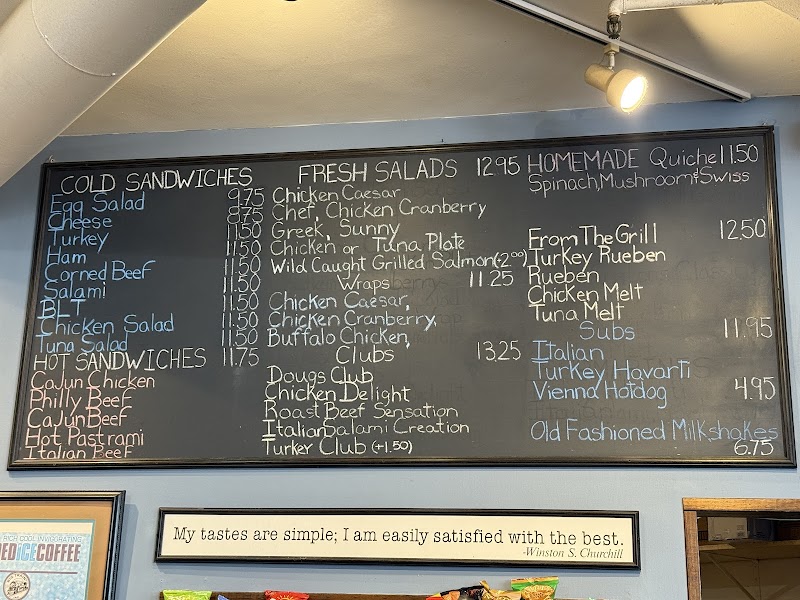 COLD SANDWICHES
Egg Salad 9.75
Cheese 8.75
Turkey 11.50
Ham 11.50
Corned Beef 11.50
Salami 11.50
BLT 11.50
Chicken Salad 11.50
Tuna Salad 11.50
HOT SANDWICHES 11.75
Cajun Chicken
Philly Beef
Cajun Beef
Hot Pastrami
Italian Beef
FRESH SALADS 12.95
Chicken Caesar
Chef, Chicken Cranberry
Greek, Sunny
Chicken or Tuna Plate
Wild Caught Grilled Salmon(+2.00)
Wraps 11.25
Chicken Caesar,
Chicken Cranberry,
Buffalo Chicken,
Clubs 13.25
Dougs Club
Chicken Delight
Roast Beef Sensation
Italian Salami Creation
Turker Club (+1.50)
HOMEMADE Quiche 11.50
Spinach, Mushroom & Swiss
From The Grill 12.50
Turkey Rueben
Rueben
Chicken Melt
Tuna Melt
Subs 11.95
Italian
Turkey Havarti
Vienna Hotdog 4.95
Old Fashioned Milkshakes
6.75
My tastes are simple; I am easily satisfied with the best.
-Winston S. Churchill
RICH COOL INVIGORATING
ED iCE COFFEE